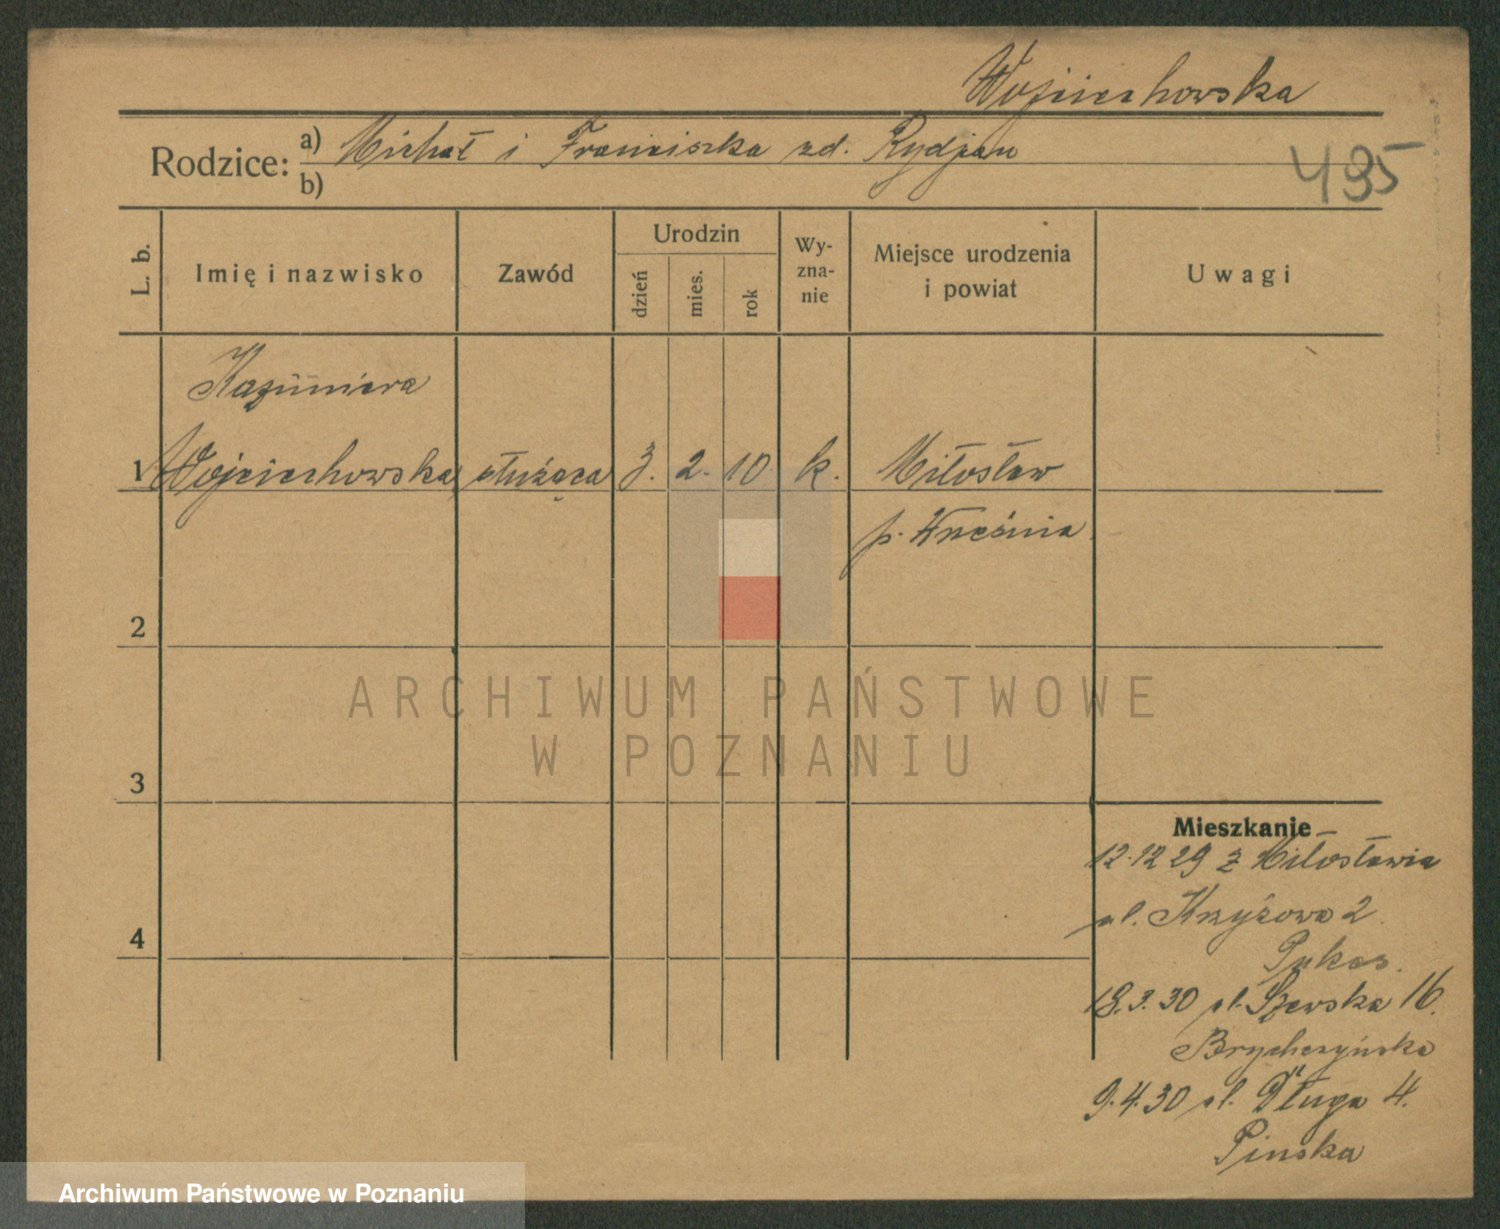 Wojciechowska
Rodzice: a) Michał i Franciszka zd. Rydjan
b)
495
L. b.
Imię i nazwisko
Zawód
Urodzin
dzień
mies.
rok
Wy-
zna-
nie
Miejsce urodzenia
i powiat
Uwagi
Kazimiera
1 Wojciechowska służąca 3. 2. 10 k. Miłosław
p. Września
2
3
4
ARCHIWUM PAŃSTWOWE
W POZNANIU
Mieszkanie
12.12 29 z Miłosławia
ul. Krzyżowa 2.
18.3.30 ul. Szewska 16.
Brychczyńska
9.4.30 ul. Długa 4.
Pinska
Archiwum Państwowe w Poznaniu